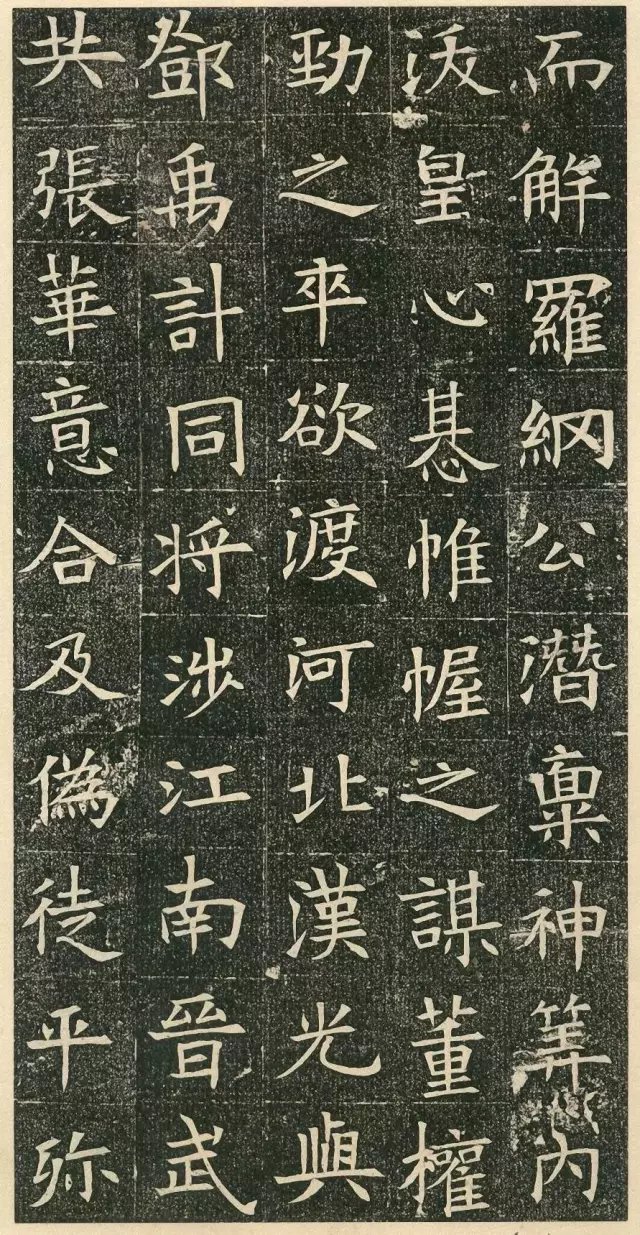 而解羅網公潛稟神筭内
沃皇心惎帷幄之謀董權
勁之卒欲渡河北漢光與
鄧禹計同将涉江南晉武
共張華意合及偽徒平殄